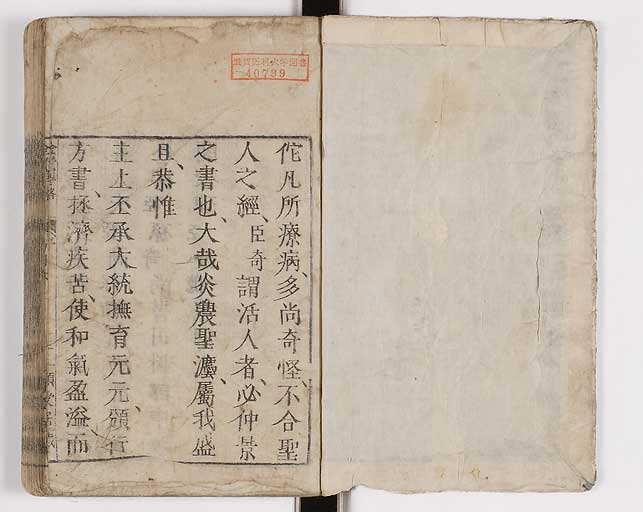 佗凡所療病、多尚奇怪、不合聖
人之經、臣奇謂活人者、必仲景
之書也、大哉炎農聖灋、屬我盛
旦、恭惟
主上丕承大統撫育元元、頒行
方書、拯濟疾苦、使和氣盈溢、而
40799